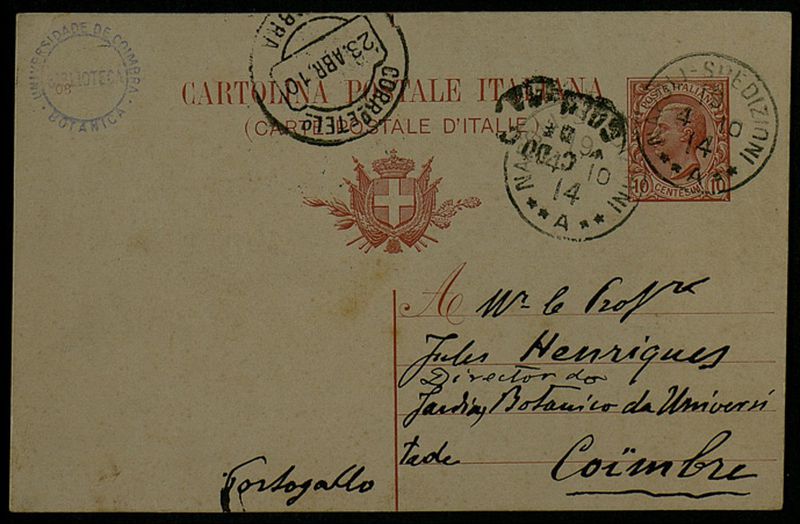 UNIVERSIDADE DE COIMBRA
BIBLIOTECA
BOTANICA
23.ABR.10
CORRO E TELO
CARTOLINA POSTALE ITALIANA
(CARTE POSTALE D'ITALIE)
4 10
14
**A**
NAPOLI-SPEDIZIONI
14
*A*
POSTE ITALIANE
10 CENTESIMI 10
A Mr le Profr
Jules Henriques
Director do
Jardin Botanico da Universi
tade
Coïmbre
Portogallo